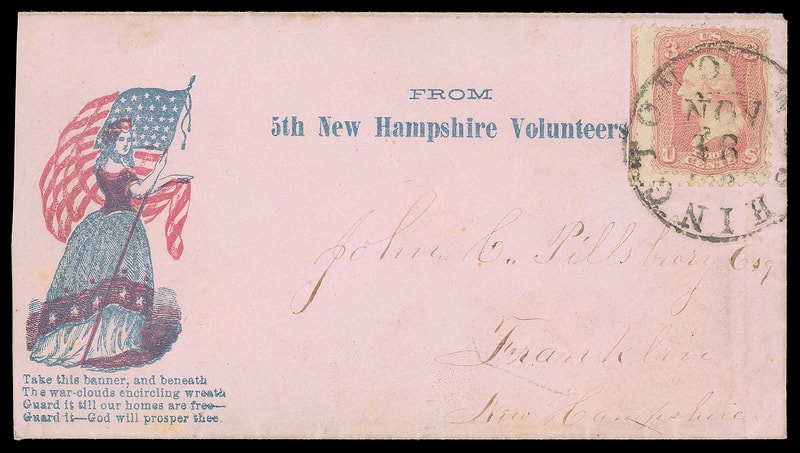 FROM
5th New Hampshire Volunteers
3 U.S. 3
U S
NOV
18
John C. Pillsbury Esq
Franklin
New Hampshire
Take this banner, and beneath
The war-clouds encircling wreath
Guard it till our homes are free—
Guard it—God will prosper thee.